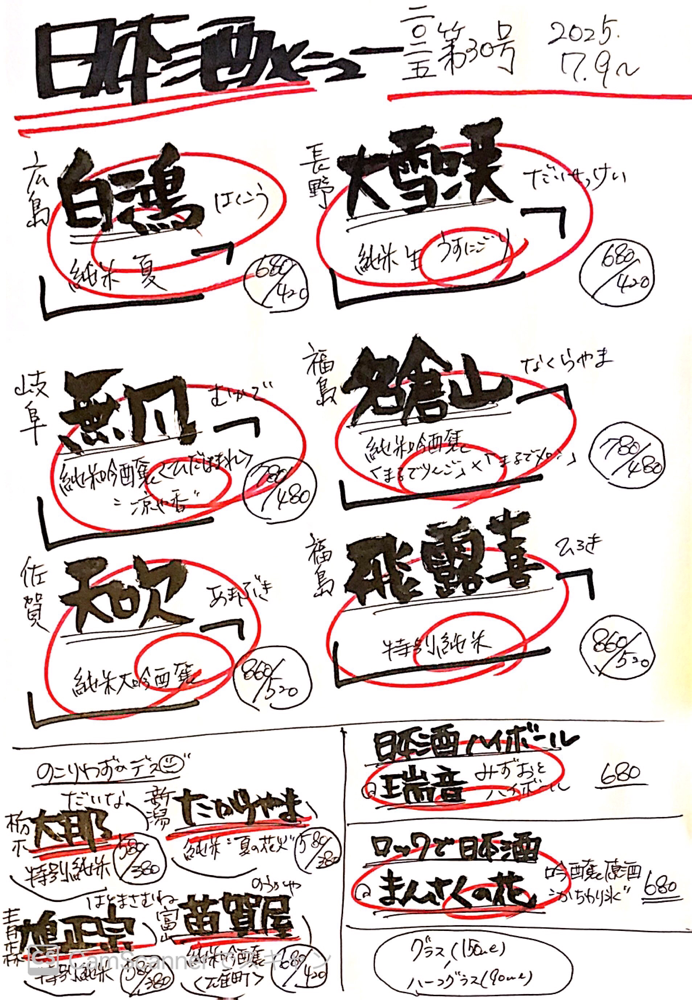 日本酒メニュー
二〇二五 第30号
2025.
7.9〜
広島
白鴻
はくこう
純米 夏
680/420
長野
大雪渓
だいせっけい
純米 生 うすにごり
680/420
岐阜
無風
むかで
純米吟醸<ひだほまれ>
"涼や香"
780/480
福島
名倉山
なくらやま
純米吟醸
「まるでりんご」×「まるでメロン」
780/480
佐賀
天吹
あまぶき
純米大吟醸
860/520
福島
飛露喜
ひろき
特別純米
860/520
のこりわずかデス
栃木
大那
だいな
特別純米
580/380
新潟
たかちやま
純米"夏の花火"
580/380
青森
鳩正宗
はとまさむね
特別純米
580/380
富山
苗加屋
のうかや
純米吟醸
680/420
日本酒ハイボール
瑞音
みずおと
ハイボール
680
ロックで日本酒
まんさくの花
吟醸原酒
"かちわり氷"
680
グラス(150ml)
ハーフグラス(90ml)
CamScannerでスキャン